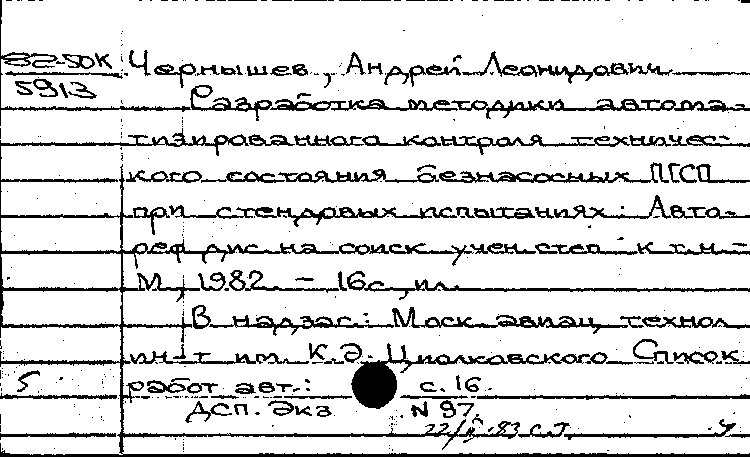 82-50К Чернышев, Андрей Леонидович
5913 Разработка методики автома-
тизированного контроля техничес-
кого состояния безнасосных ПГСП
при стендовых испытаниях: Авто-
реф дис. на соиск учен. степ к.т.н. -
М., 1982. - 16с., ил.
В надзаг.: Моск. авиац. технол.
ин-т им. К.Э. Циолковского Список
5 работ авт.: с. 16.
ДСП. Экз N 97.
22/ -83 С.Т.